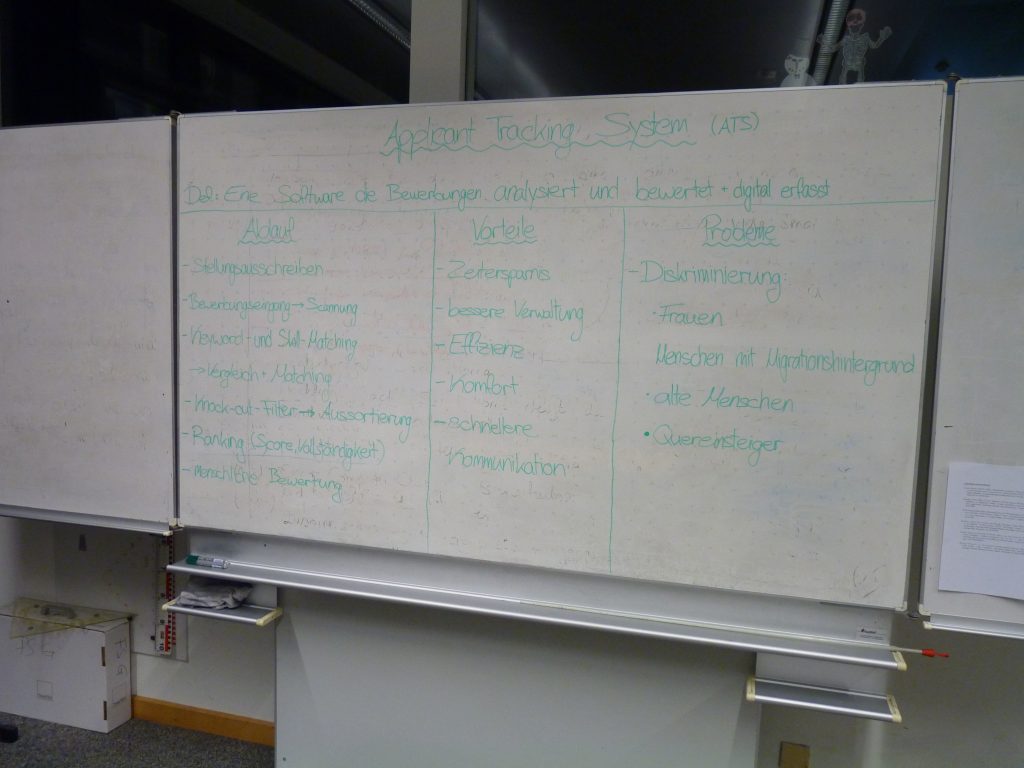 Applicant Tracking System (ATS)
Def.: Eine Software die Bewerbungen analysiert und bewertet + digital erfasst
Ablauf
- Stellungsausschreiben
- Bewerbungseingang → Scannung
- Keyword- und Skill-Matching
→ Vergleich + Matching
- Knock-out-Filter → Aussortierung
- Ranking (Score, Vollständigkeit)
- Menschliche Bewertung
Vorteile
- Zeitersparnis
- bessere Verwaltung
- Effizienz
- Komfort
- schnellere
Kommunikation
Probleme
- Diskriminierung:
· Frauen
Menschen mit Migrationshintergrund
· alte Menschen
• Quereinsteiger